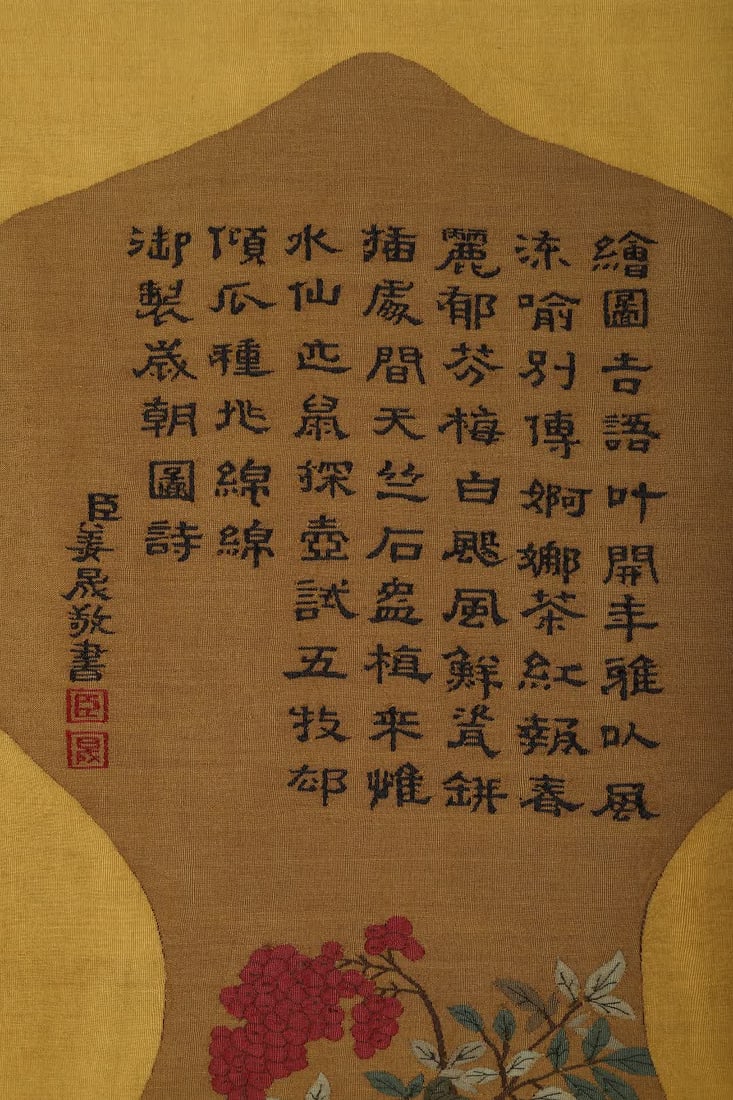 繪圖吉語叶開年雅以風
流喻別傳婀娜茶紅報春
麗郁芬梅白颺風鮮瓷缾
插處間天竺石盎植來惟
水仙匹鼠探壺試五技却
傾瓜種兆綿綿
御製歲朝圖詩
臣姜晟敬書
臣
晟